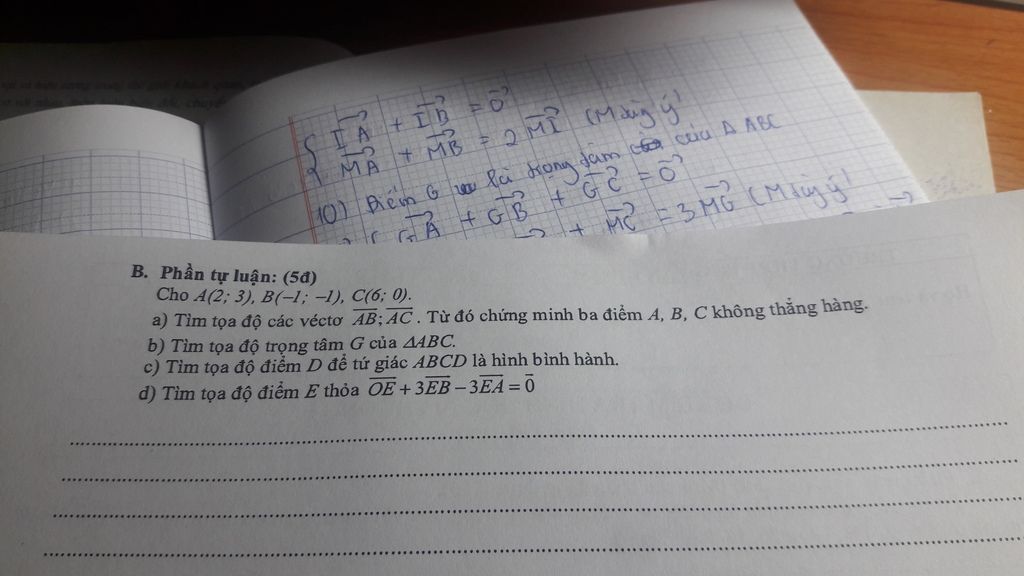 { IA + IB = 0
MA + MB = 2 MI (M tùy ý)
10) Điểm G là trọng tâm của Δ ABC
GA + GB + GC = 0
+ MC = 3MG (M tùy ý)
B. Phần tự luận: (5đ)
Cho A(2; 3), B(–1; –1), C(6; 0).
a) Tìm tọa độ các véctơ AB; AC . Từ đó chứng minh ba điểm A, B, C không thẳng hàng.
b) Tìm tọa độ trọng tâm G của ΔABC.
c) Tìm tọa độ điểm D để tứ giác ABCD là hình bình hành.
d) Tìm tọa độ điểm E thỏa OE + 3EB – 3EA = 0